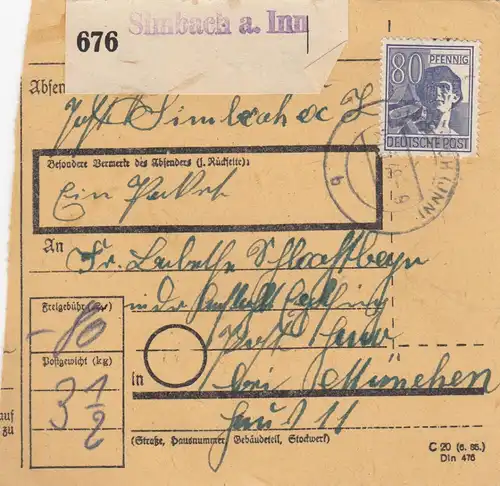 676
Simbach a. Inn
80 PFENNIG
DEUTSCHE POST
Absen
Post Simbach a. I.
(INN)
b
Besondere Vermerke des Absenders (s. Rückseite):
Ein Paket
An
Fr.
in der Anstalt
Freigebühr
-80
Post Haar
Postgewicht (kg)
in
bei München
3 1/2
Haus 11
auf
zu
(Straße, Hausnummer, Gebäudeteil, Stockwerk)
C 20 (6. 36.)
Din 476